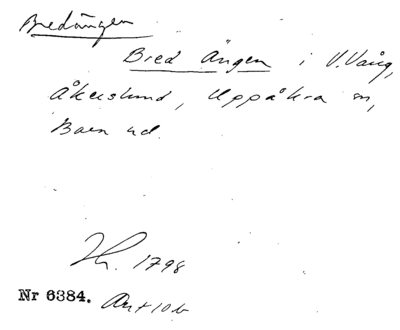 Bredängen
Bred Ängen i V. Vång,
Åkerslund, Uppåkra sn,
Bara hd.
1798
Nr 6384.